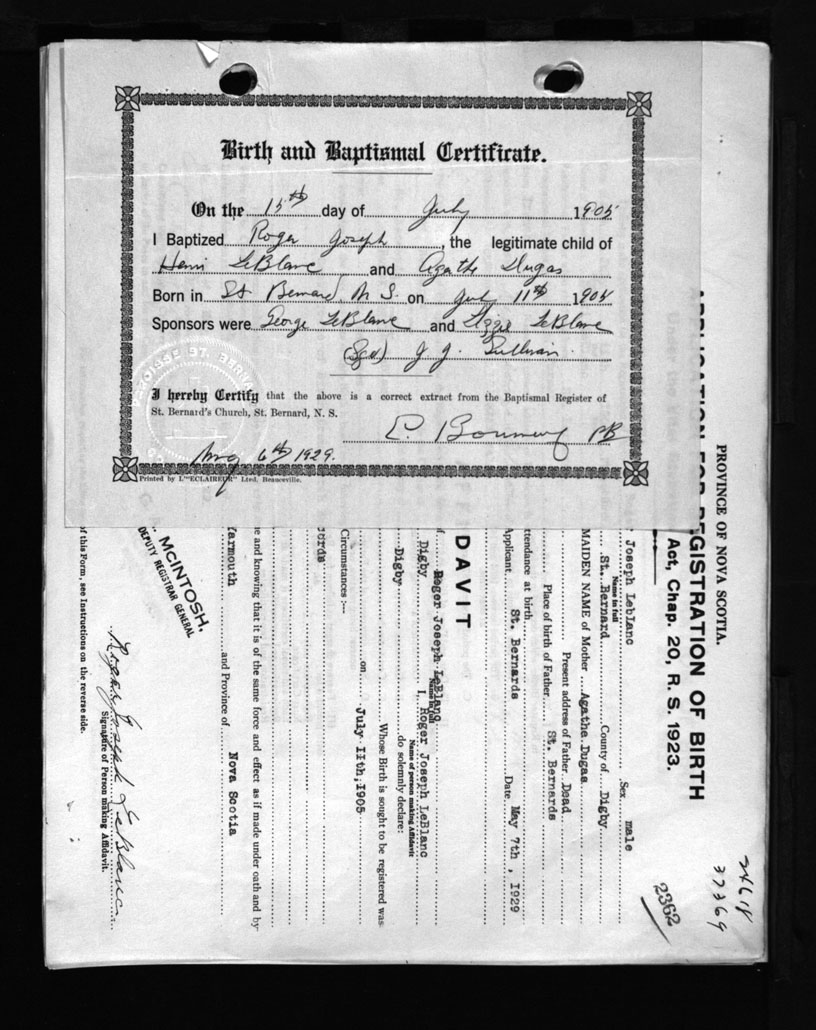 Birth and Baptismal Certificate.
On the 15th day of July 1905
I Baptized Roger Joseph, the legitimate child of
Henri LeBlanc and Agathe Dugas
Born in St Bernard N S. on July 11th 1905
Sponsors were George LeBlanc and Lizzie LeBlanc
(Sgd) J. J. Sullivan.
I hereby Certify that the above is a correct extract from the Baptismal Register of
St. Bernard's Church, St. Bernard, N. S.
PB
Aug 6th 1929.
Printed by L'"ECLAIREUR" Lted, Beauceville.
24618
37369
2362
PROVINCE OF NOVA SCOTIA.
APPLICATION FOR REGISTRATION OF BIRTH
Act, Chap. 20, R. S. 1923.
Joseph Leblanc Sex male
Name in full
St. Bernard County of Digby
MAIDEN NAME of Mother Agathe Dugas
Present address of Father Dead
Place of birth of Father St. Bernards
ttendance at birth
Applicant St. Bernards Date May 7th, 1929
DAVIT
Roger Joseph LeBlanc
Name in full
Digby I, Roger Joseph LeBlanc
Name of person making Affidavit
Digby do solemnly declare:
Whose Birth is sought to be registered was
on July 11th, 1905
Circumstances:—
cords
e and knowing that it is of the same force and effect as if made under oath and by
Yarmouth and Province of Nova Scotia
MCINTOSH.
DEPUTY REGISTRAR GENERAL
Roger Joseph LeBlanc
Signature of Person making Affidavit.
of this Form, see Instructions on the reverse side.